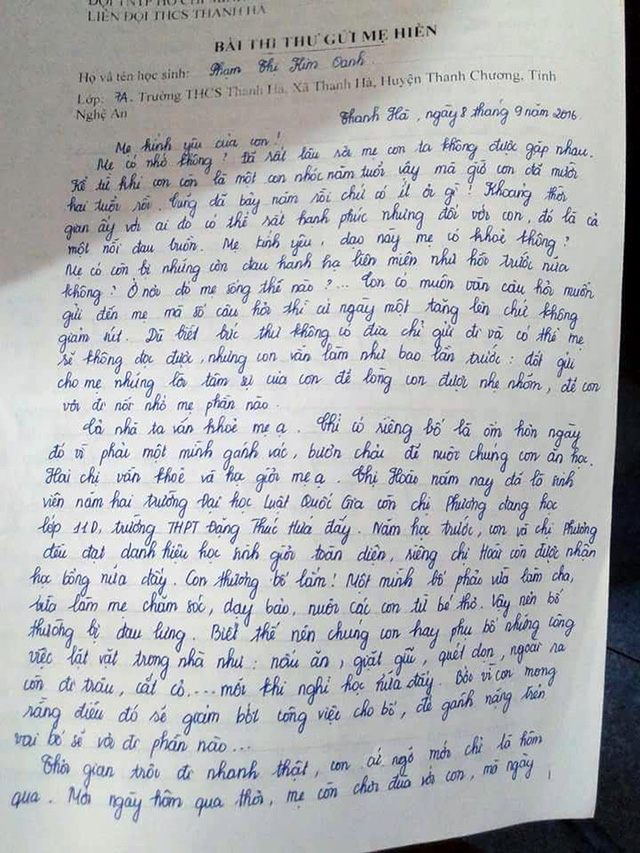 ĐỘI TNTP HỒ CHÍ MINH
LIÊN ĐỘI THCS THANH HÀ
BÀI THI THƯ GỬI MẸ HIỀN
Họ và tên học sinh: Phạm Thị Kim Oanh.
Lớp: 7A. Trường THCS Thanh Hà, Xã Thanh Hà, Huyện Thanh Chương, Tỉnh
Nghệ An
Thanh Hà, ngày 8 tháng 9 năm 2016.
Mẹ kính yêu của con!
Mẹ có nhớ không? Đã rất lâu rồi mẹ con ta không được gặp nhau.
Kể từ khi con còn là một con nhóc năm tuổi vậy mà giờ con đã mười
hai tuổi rồi. Cũng đã bảy năm rồi chứ có ít ỏi gì! Khoảng thời
gian ấy với ai đó có thể rất hạnh phúc nhưng đối với con, đó là cả
một nỗi đau buồn. Mẹ kính yêu, dạo này mẹ có khoẻ không?
Mẹ có còn bị những cơn đau hành hạ liên miên như hồi trước nữa
không? Ở nơi đó mẹ sống thế nào?... Con có muôn vàn câu hỏi muốn
gửi đến mẹ mà số câu hỏi thì cứ ngày một tăng lên chứ không
giảm rút. Dù biết bức thư không có địa chỉ gửi đi và có thể mẹ
sẽ không đọc được, nhưng con vẫn làm như bao lần trước: đốt gửi
cho mẹ những lời tâm sự của con để lòng con được nhẹ nhõm, để con
vơi đi nỗi nhớ mẹ phần nào.
Cả nhà ta vẫn khoẻ mẹ ạ. Chỉ có riêng bố là ốm hơn ngày
đó vì phải một mình gánh vác, bươn chải để nuôi chúng con ăn học.
Hai chị vẫn khoẻ và học giỏi mẹ ạ. Chị Hoài năm nay đã là sinh
viên năm hai trường Đại học Luật Quốc Gia còn chị Phương đang học
lớp 11D, trường THPT Đặng Thúc Hứa đấy. Năm học trước, con và chị Phương
đều đạt danh hiệu học sinh giỏi toàn diện, riêng chị Hoài còn được nhận
học bổng nữa đấy. Con thương bố lắm! Một mình bố phải vừa làm cha,
vừa làm mẹ chăm sóc, dạy bảo, nuôi các con từ bé thơ. Vậy nên bố
thường bị đau lưng. Biết thế nên chúng con hay phụ bố những công
việc lặt vặt trong nhà như: nấu ăn, giặt giũ, quét dọn, ngoài ra
còn đi trâu, cắt cỏ.... mỗi khi nghỉ học nữa đấy. Bởi vì con mong
rằng điều đó sẽ giảm bớt công việc cho bố, để gánh nặng trên
vai bố sẽ vơi đi phần nào...
Thời gian trôi đi nhanh thật, con cứ ngỡ mới chỉ là hôm
qua. Mới ngày hôm qua thôi, mẹ còn chơi đùa với con, mà ngày